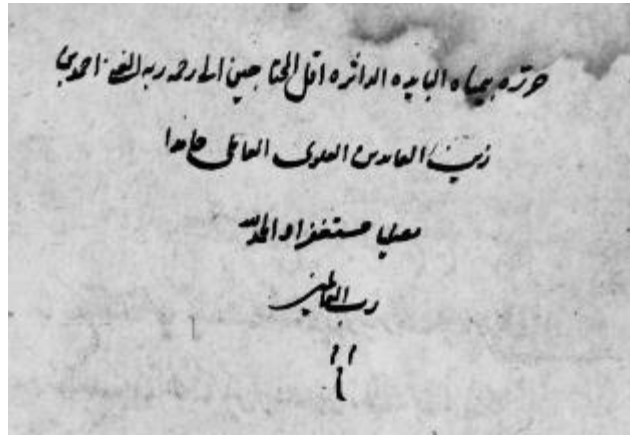 حرره بيمناه البايده الداثره اقل المحتاجين الى رحمه ربه الغنى احمد بن
زين العابدين العلوى العاملى حامدا
مصليا مستغفرا و الحمد لله
رب العالمين